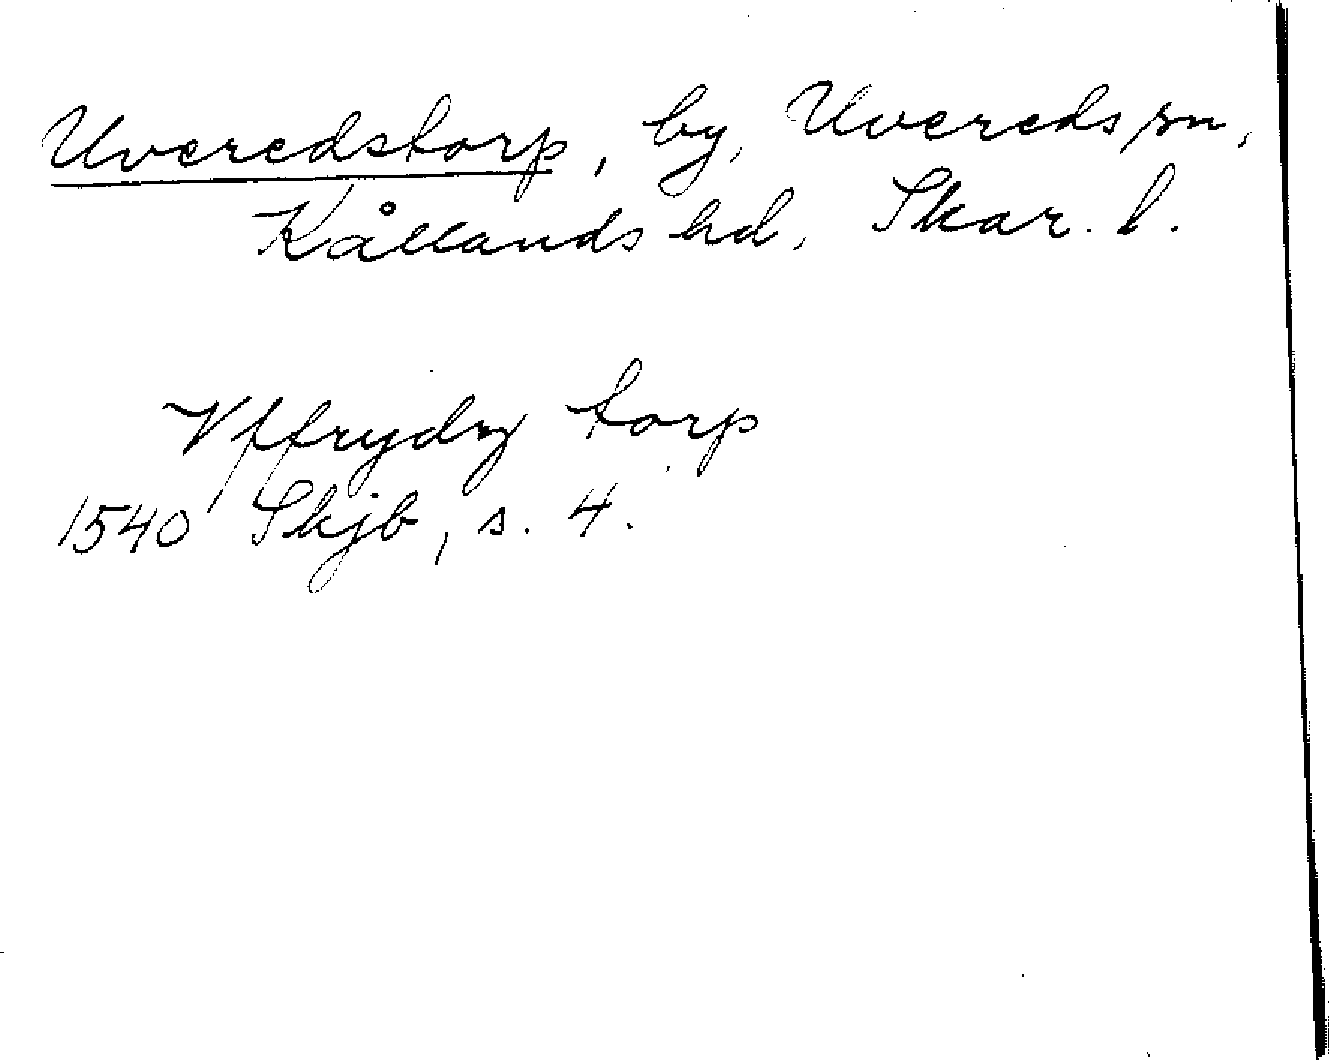 Uveredstorp, by, Uvereds sn,
Kållands hd, Skar. l.
Vffrydz torp
1540 Skjb, s. 4.